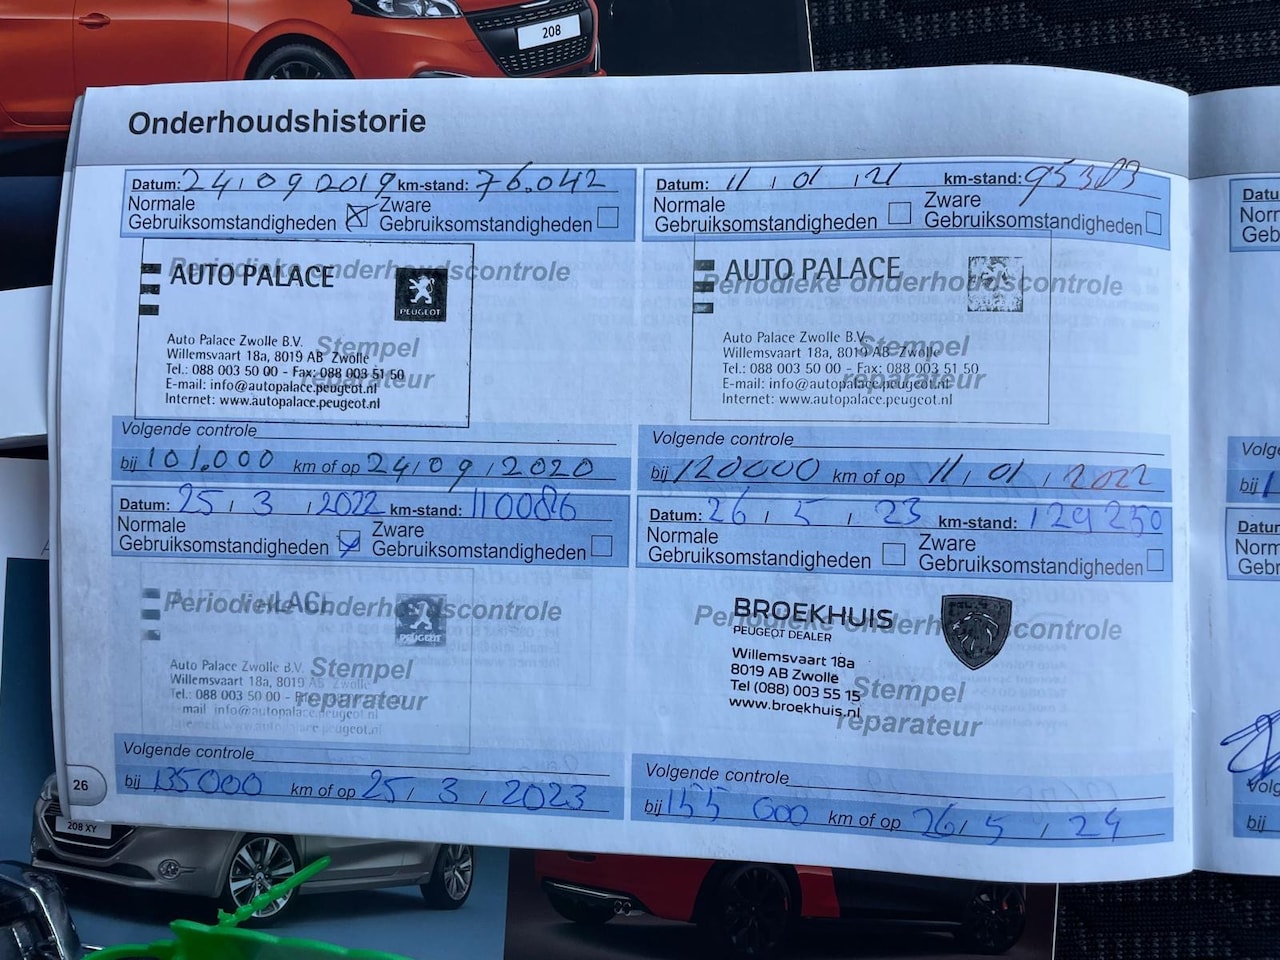 208
Onderhoudshistorie
Datum: 24 / 09 2019 km-stand: 76.042
Normale
Gebruiksomstandigheden
Zware
Gebruiksomstandigheden
AUTO PALACE
Periodieke onderhoudscontrole
PEUGEOT
Auto Palace Zwolle B.V.
Willemsvaart 18a, 8019 AB Zwolle
Tel.: 088 003 50 00 - Fax: 088 003 51 50
E-mail: info@autopalace.peugeot.nl
Internet: www.autopalace.peugeot.nl
Stempel
reparateur
Volgende controle
bij 101.000 km of op 24 / 09 / 2020
Datum: 11 / 01 / 21 km-stand: 95303
Normale
Gebruiksomstandigheden
Zware
Gebruiksomstandigheden
AUTO PALACE
Periodieke onderhoudscontrole
Auto Palace Zwolle B.V.
Willemsvaart 18a, 8019 AB Zwolle
Tel.: 088 003 50 00 - Fax: 088 003 51 50
E-mail: info@autopalace.peugeot.nl
Internet: www.autopalace.peugeot.nl
Stempel
reparateur
Volgende controle
bij 120000 km of op 11 / 01 / 2022
Datum: 25 / 3 / 2022 km-stand: 110086
Normale
Gebruiksomstandigheden
Zware
Gebruiksomstandigheden
Periodieke onderhoudscontrole
PEUGEOT
Auto Palace Zwolle B.V.
Willemsvaart 18a, 8019 AB Zwolle
Tel.: 088 003 50 00 -
mail info@autopalace.peugeot.nl
www.autopalace.peugeot.nl
Stempel
reparateur
Volgende controle
bij 135000 km of op 25 / 3 / 2023
Datum: 26 / 5 / 23 km-stand: 129250
Normale
Gebruiksomstandigheden
Zware
Gebruiksomstandigheden
BROEKHUIS
Periodieke onderhoudscontrole
PEUGEOT DEALER
Willemsvaart 18a
8019 AB Zwolle
Tel (088) 003 55 15
www.broekhuis.nl
Stempel
reparateur
Volgende controle
bij 155 000 km of op 26 / 5 / 24
26
208 XY
Datu
Norm
Geb
Volge
bij
Datum
Norm
Geb
Volg
bij